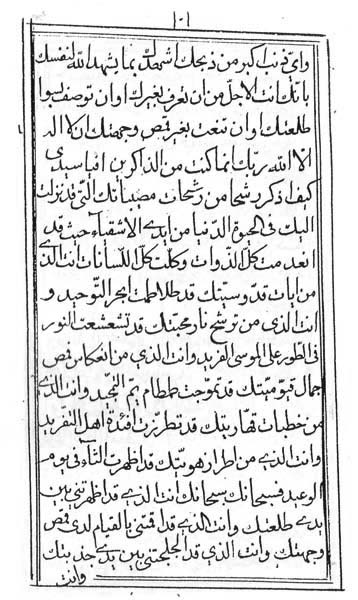 ١٠١
وايّ ذنب اكبر من ذلك اشهدك بما يشهد الله لنفسك
بانك انت الاجلّ من ان تعرف بغيرك او ان توصف بسوا
طلعتك او ان تنعت بغير قمص وجهتك ان لا اله
الا الله ربّك بما كنت من الذاكرين افيا سيدي
كيف اذكر رشحا من رشحات مصيباتك التى قد نزلت
اليك فى الحيوة الدنيا من ايدى الاشقياء حيث قد
انعدمت كل الذوات وكلّت كل اللسانات انت الذى
من ايات قدوسيتك قد طلاطمت ابحر التوحيد و
انت الذي من ترشح نار محبتك قد تشعشعت النور
فى الطور على الموسى الفريد وانت الذي من انعكاس قمص
جمال قيوميتك قد تموجت طمطام يم التجيد وانت الذى
من خطبات قهاريتك قد تطرزت افئدة اهل التفريد
وانت الذى من اطراز هويتك قد اظهرت الثآء فى يوم
الوعيد فسبحانك سبحانك انت الذى قد اظهرتنى بين
يدى طلعتك وانت الذى قد اقمتنى بالقيام لدى قمص
وجهتك وانت الذي قد اجلجتنى بين يدى جذبتك
وانت